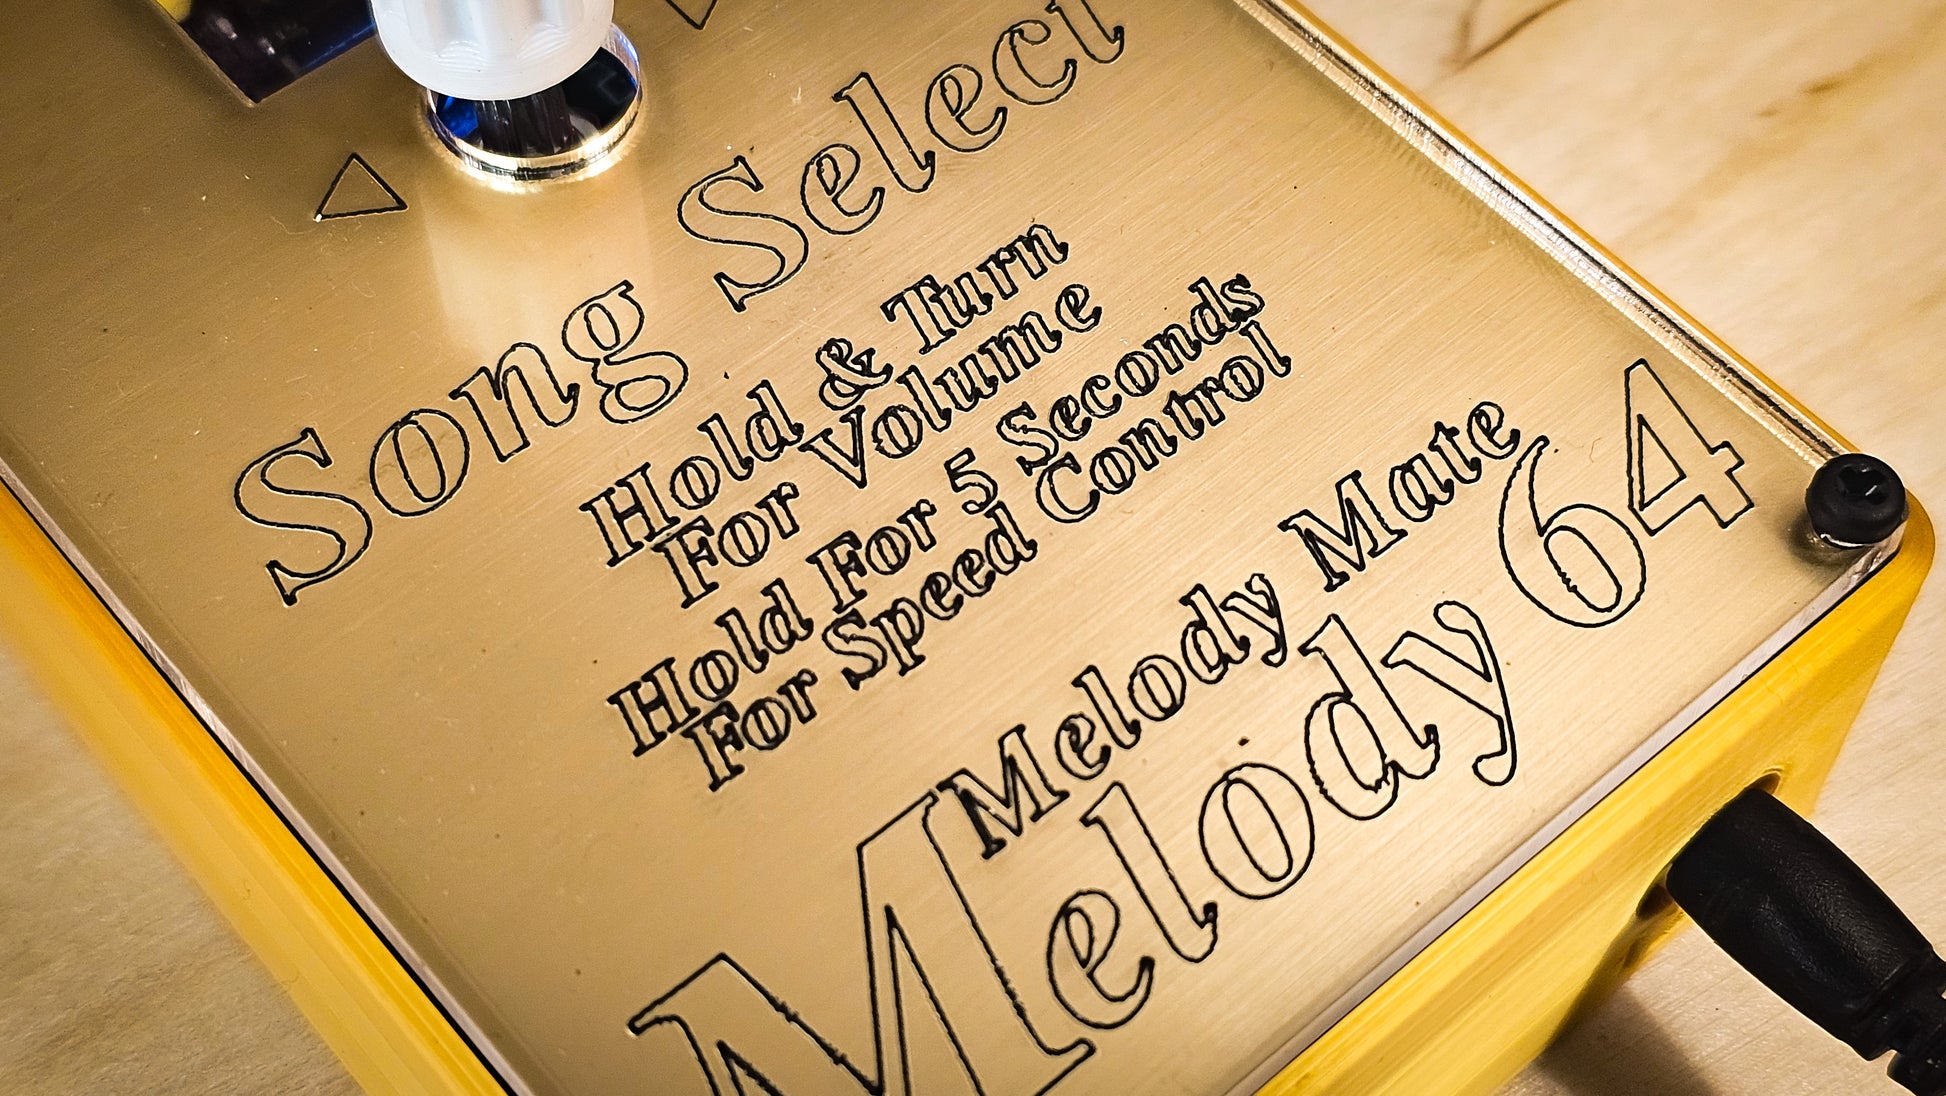 Song Select
Hold & Turn
For Volume
Hold For 5 Seconds
For Speed Control
Melody Mate
Melody 64